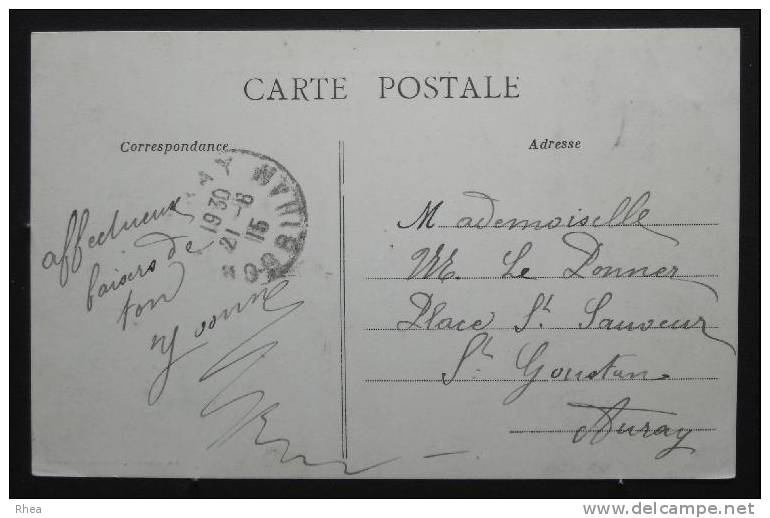 CARTE POSTALE
Correspondance
Adresse
affectueux
baisers de
ton
Yvonne
1930
21-8
15
MORBIHAN
Mademoiselle
M. Le Donner
Place St. Sauveur
St. Goustan
Auray
Rhea
www.delcampe.net